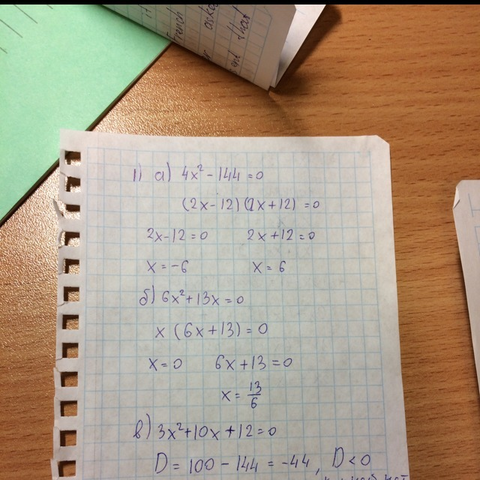 French
1) а) 4x² - 144 = 0
(2x - 12)(2x + 12) = 0
2x - 12 = 0 2x + 12 = 0
x = -6 x = 6
б) 6x² + 13x = 0
x (6x + 13) = 0
x = 0 6x + 13 = 0
x = 13/6
в) 3x² + 10x + 12 = 0
D = 100 - 144 = -44, D < 0